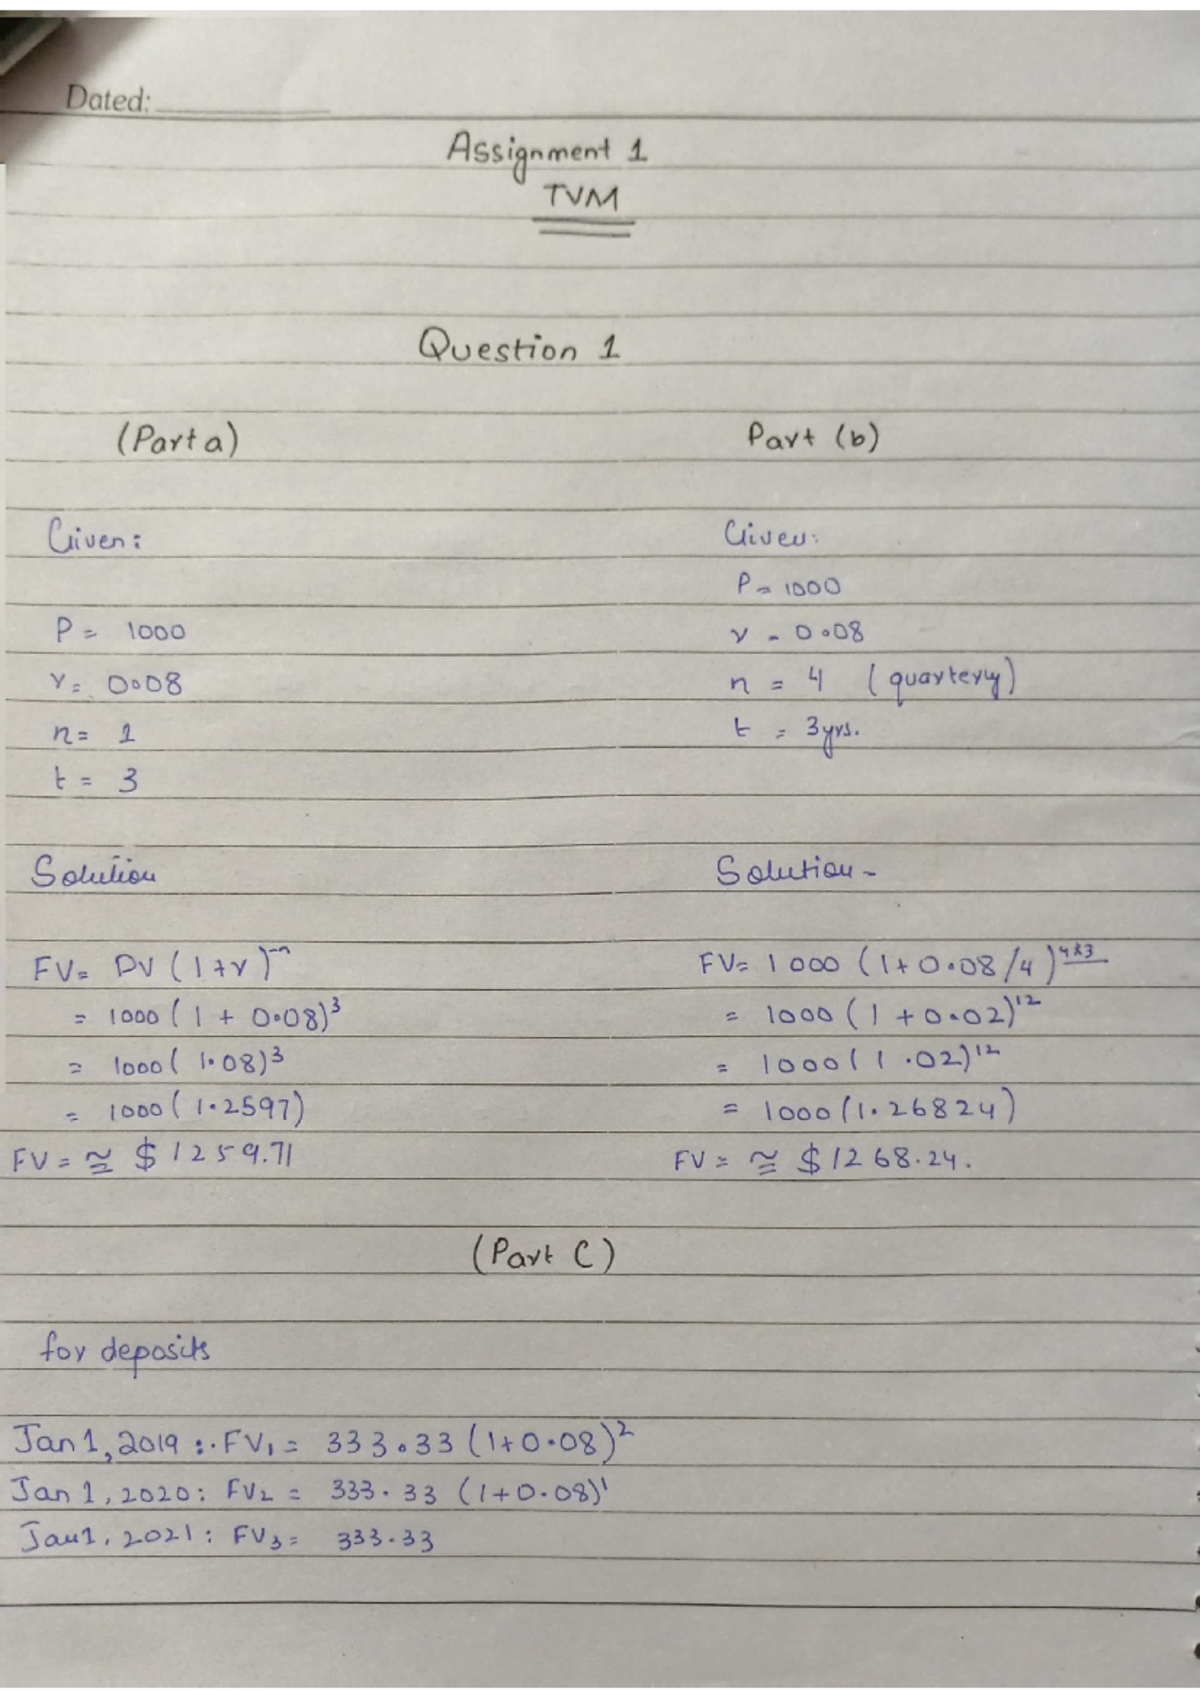 Dated:
Assignment 1
TVM
Question 1
(Part a)
Part (b)
Given:
P = 1000
r = 0.08
n = 1
t = 3
Solution
FV = PV (1+r)^n
= 1000 (1 + 0.08)^3
= 1000 (1.08)^3
= 1000 (1.2597)
FV = ≅ $ 1259.71
Given:
P = 1000
r = 0.08
n = 4 (quarterly)
t = 3yrs.
Solution -
FV = 1000 (1+0.08/4)^4x3
= 1000 (1 + 0.02)^12
= 1000 (1.02)^12
= 1000 (1.26824)
FV = ≅ $ 1268.24.
(Part C)
for deposits
Jan 1, 2019 :. FV1 = 333.33 (1+0.08)^2
Jan 1, 2020 : FV2 = 333.33 (1+0.08)^1
Jan 1, 2021 : FV3 = 333.33